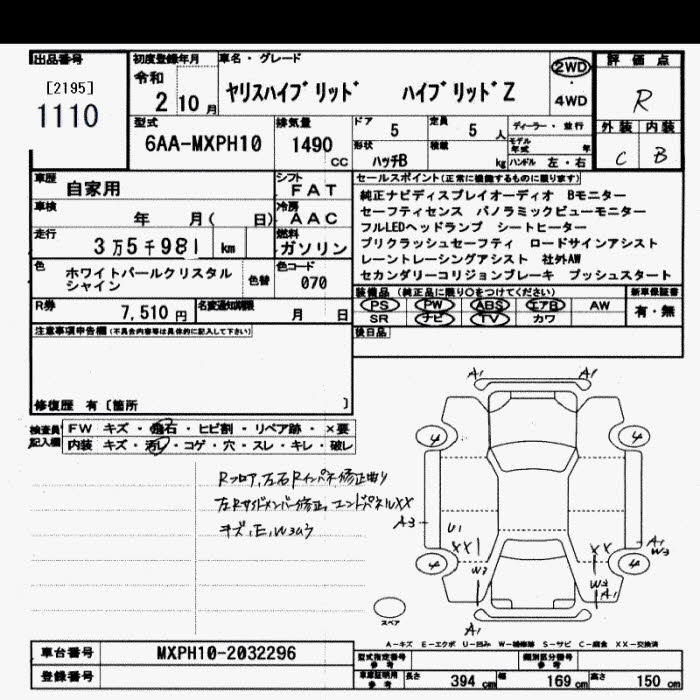 出品番号 初度登録年月 車名・グレード 評価点
[2195] 令和 2WD
1110 2 10月 ヤリスハイブリッド ハイブリッドZ ・ R
4WD
型式 排気量 ドア 5 定員 5人 ディーラー・並行 外装 内装
6AA-MXPH10 1490 CC 形状 ハッチB 積載 kg モデル年式 年 C B
ハンドル 左・右
車歴 自家用 シフト FAT セールスポイント(正常に機能するものに限ります)
車検 年 月( 日) 冷房 AAC 純正ナビディスプレイオーディオ Bモニター
セーフティセンス パノラミックビューモニター
走行 3万5千981 km 燃料 ガソリン フルLEDヘッドランプ シートヒーター
プリクラッシュセーフティ ロードサインアシスト
色 ホワイトパールクリスタル 色替 色コード レーントレーシングアシスト 社外AW
シャイン 070 セカンダリーコリジョンブレーキ プッシュスタート
R券 7,510円 名変通知期限 月 日 装備品(純正品に限り○をつけてください) 新車保証書
PS PW ABS エアB AW 有・無
SR ナビ TV カワ
注意事項申告欄(不具合内容等は具体的に記入して下さい) 後日品
修復歴 有〔箇所 〕
検査員記入欄 FW キズ・飛石・ヒビ割・リペア跡・×要
内装 キズ・汚レ・コゲ・穴・スレ・キレ・破レ
A1 A1
4 4
Rフロア,左右Rインパネ修正曲り
左Rサイドメンバー修正,エンドパネルXX
キズ,E,W3ムラ
A3 U1 A1
W3
XX XX
4 4
W2 W3
A1
A1
スペア
A-キズ E-エクボ U-凹み W-補修跡 S-サビ C-腐食 XX-交換済
車台番号 MXPH10-2032296 型式指定番号 参考 類別区分番号 参考
登録番号 車庫証明用 参考 長さ 394 cm 幅 169 cm 高さ 150 cm